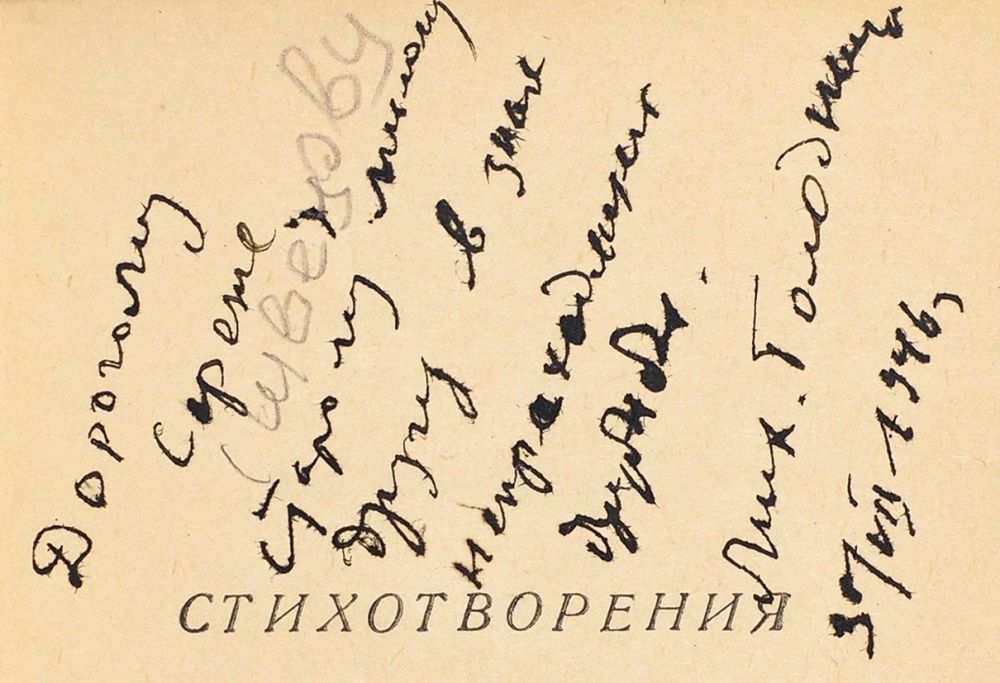 Дорогому
Сереже,
(Швецову)
старому милому
другу в знак
непреходящей
дружбы.
Мих. Голодный
30/VII-1946,
СТИХОТВОРЕНИЯ